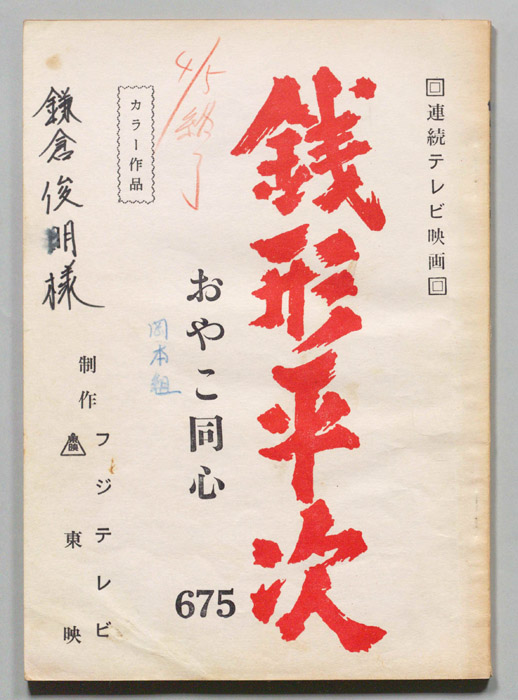 回連続テレビ映画回
銭形平次
おやこ同心
675
岡本組
4/5
終了
カラー作品
鎌倉俊明様
制作
フジテレビ
東映